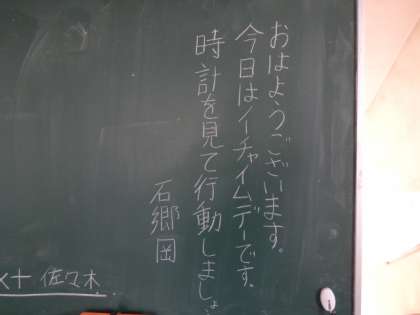 おはようございます。
今日はノーチャイムデーです。
時計を見て行動しましょ
石郷岡
佐々木